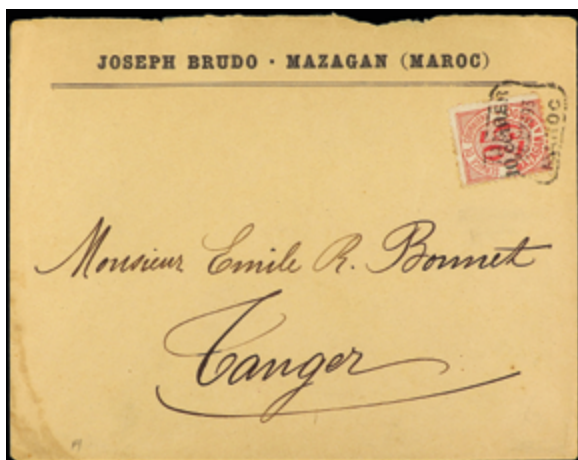 JOSEPH BRUDO · MAZAGAN (MAROC)
MAROC
Monsieur Emile R. Bonnet
Tanger